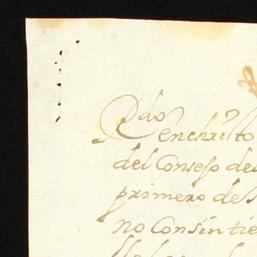 Rdo
en christo
del Consejo de
primero de
no Consintie